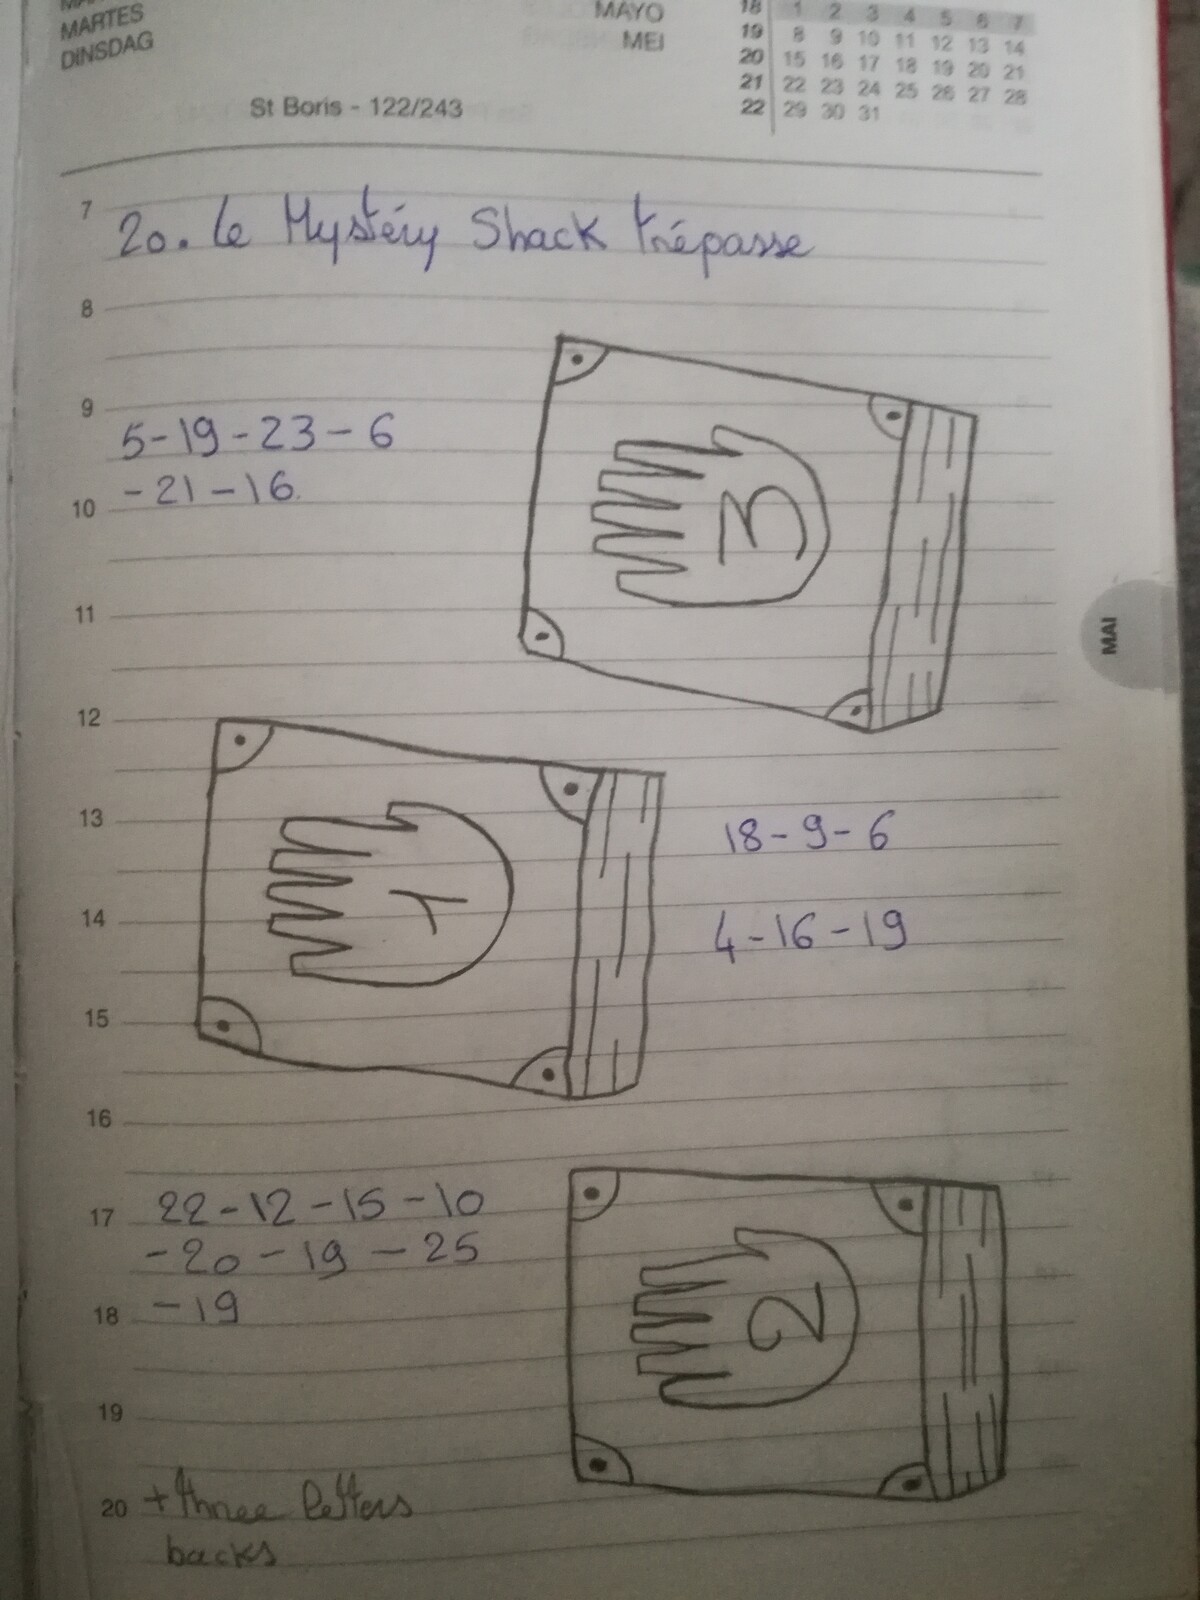 MARTES
DINSDAG
MAYO
MEI
St Boris - 122/243
18 1 2 3 4 5 6 7
19 8 9 10 11 12 13 14
20 15 16 17 18 19 20 21
21 22 23 24 25 26 27 28
22 29 30 31
7
20. Le Mystéry Shack trépasse
8
9
5-19-23-6
-21-16.
10
3
11
MAI
12
13
18-9-6
1
14
4-16-19
15
16
17
22-12-15-10
-20-19-25
18
-19
2
19
20
+ three letters
backs